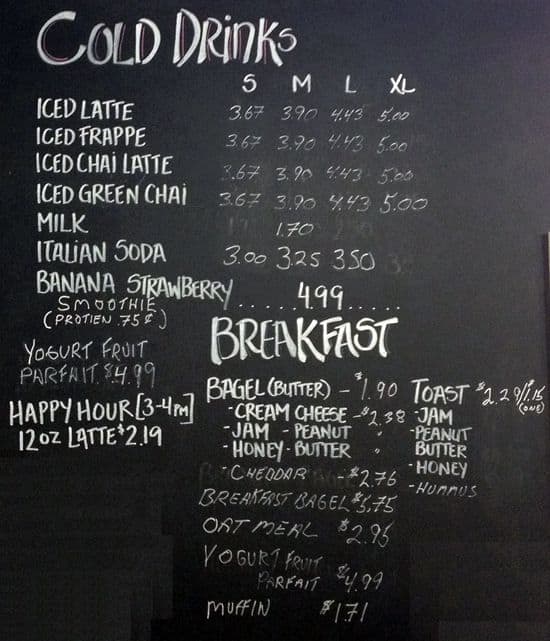 COLD DRINKS
S M L XL
ICED LATTE 3.67 3.90 4.43 5.00
ICED FRAPPE 3.67 3.90 4.43 5.00
ICED CHAI LATTE 3.67 3.90 4.43 5.00
ICED GREEN CHAI 3.67 3.90 4.43 5.00
MILK 1.70
ITALIAN SODA 3.00 3.25 3.50
BANANA STRAWBERRY ..... 4.99 .....
SMOOTHIE
(PROTIEN .75¢)
YOGURT FRUIT
PARFAIT $4.99
HAPPY HOUR [3-4PM]
12OZ LATTE $2.19
BREAKFAST
BAGEL (BUTTER) - $1.90
- CREAM CHEESE - $2.38
- JAM - PEANUT "
- HONEY - BUTTER "
- CHEDDAR - $2.76
BREAKFAST BAGEL $5.75
OATMEAL $2.95
YOGURT FRUIT
PARFAIT $4.99
MUFFIN $1.71
TOAST $2.29/$1.15
(ONE)
- JAM
- PEANUT
BUTTER
- HONEY
- HUMMUS